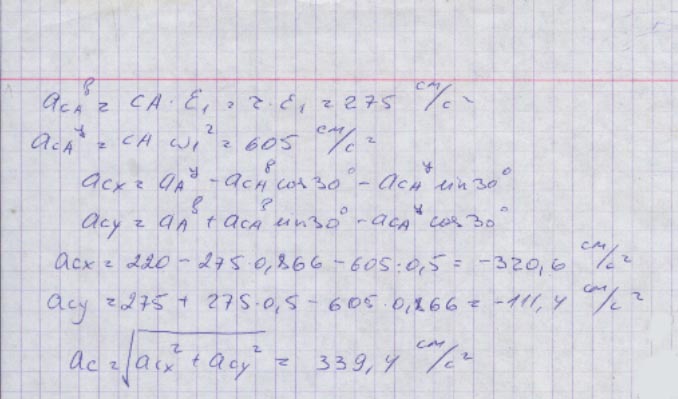 aCAᵇ = CA · ε₁ = r · ε₁ = 275 см/с²
aCAʸ = CA ω₁² = 605 см/с²
aCx = aAʸ - aCAᵇ cos30° - aCAʸ sin30°
aCy = aAᵇ + aCAᵇ sin30° - aCAʸ cos30°
aCx = 220 - 275·0,866 - 605·0,5 = -320,6 см/с²
aCy = 275 + 275·0,5 - 605·0,866 = -111,4 см/с²
aC = √(aCx² + aCy²) = 339,4 см/с²